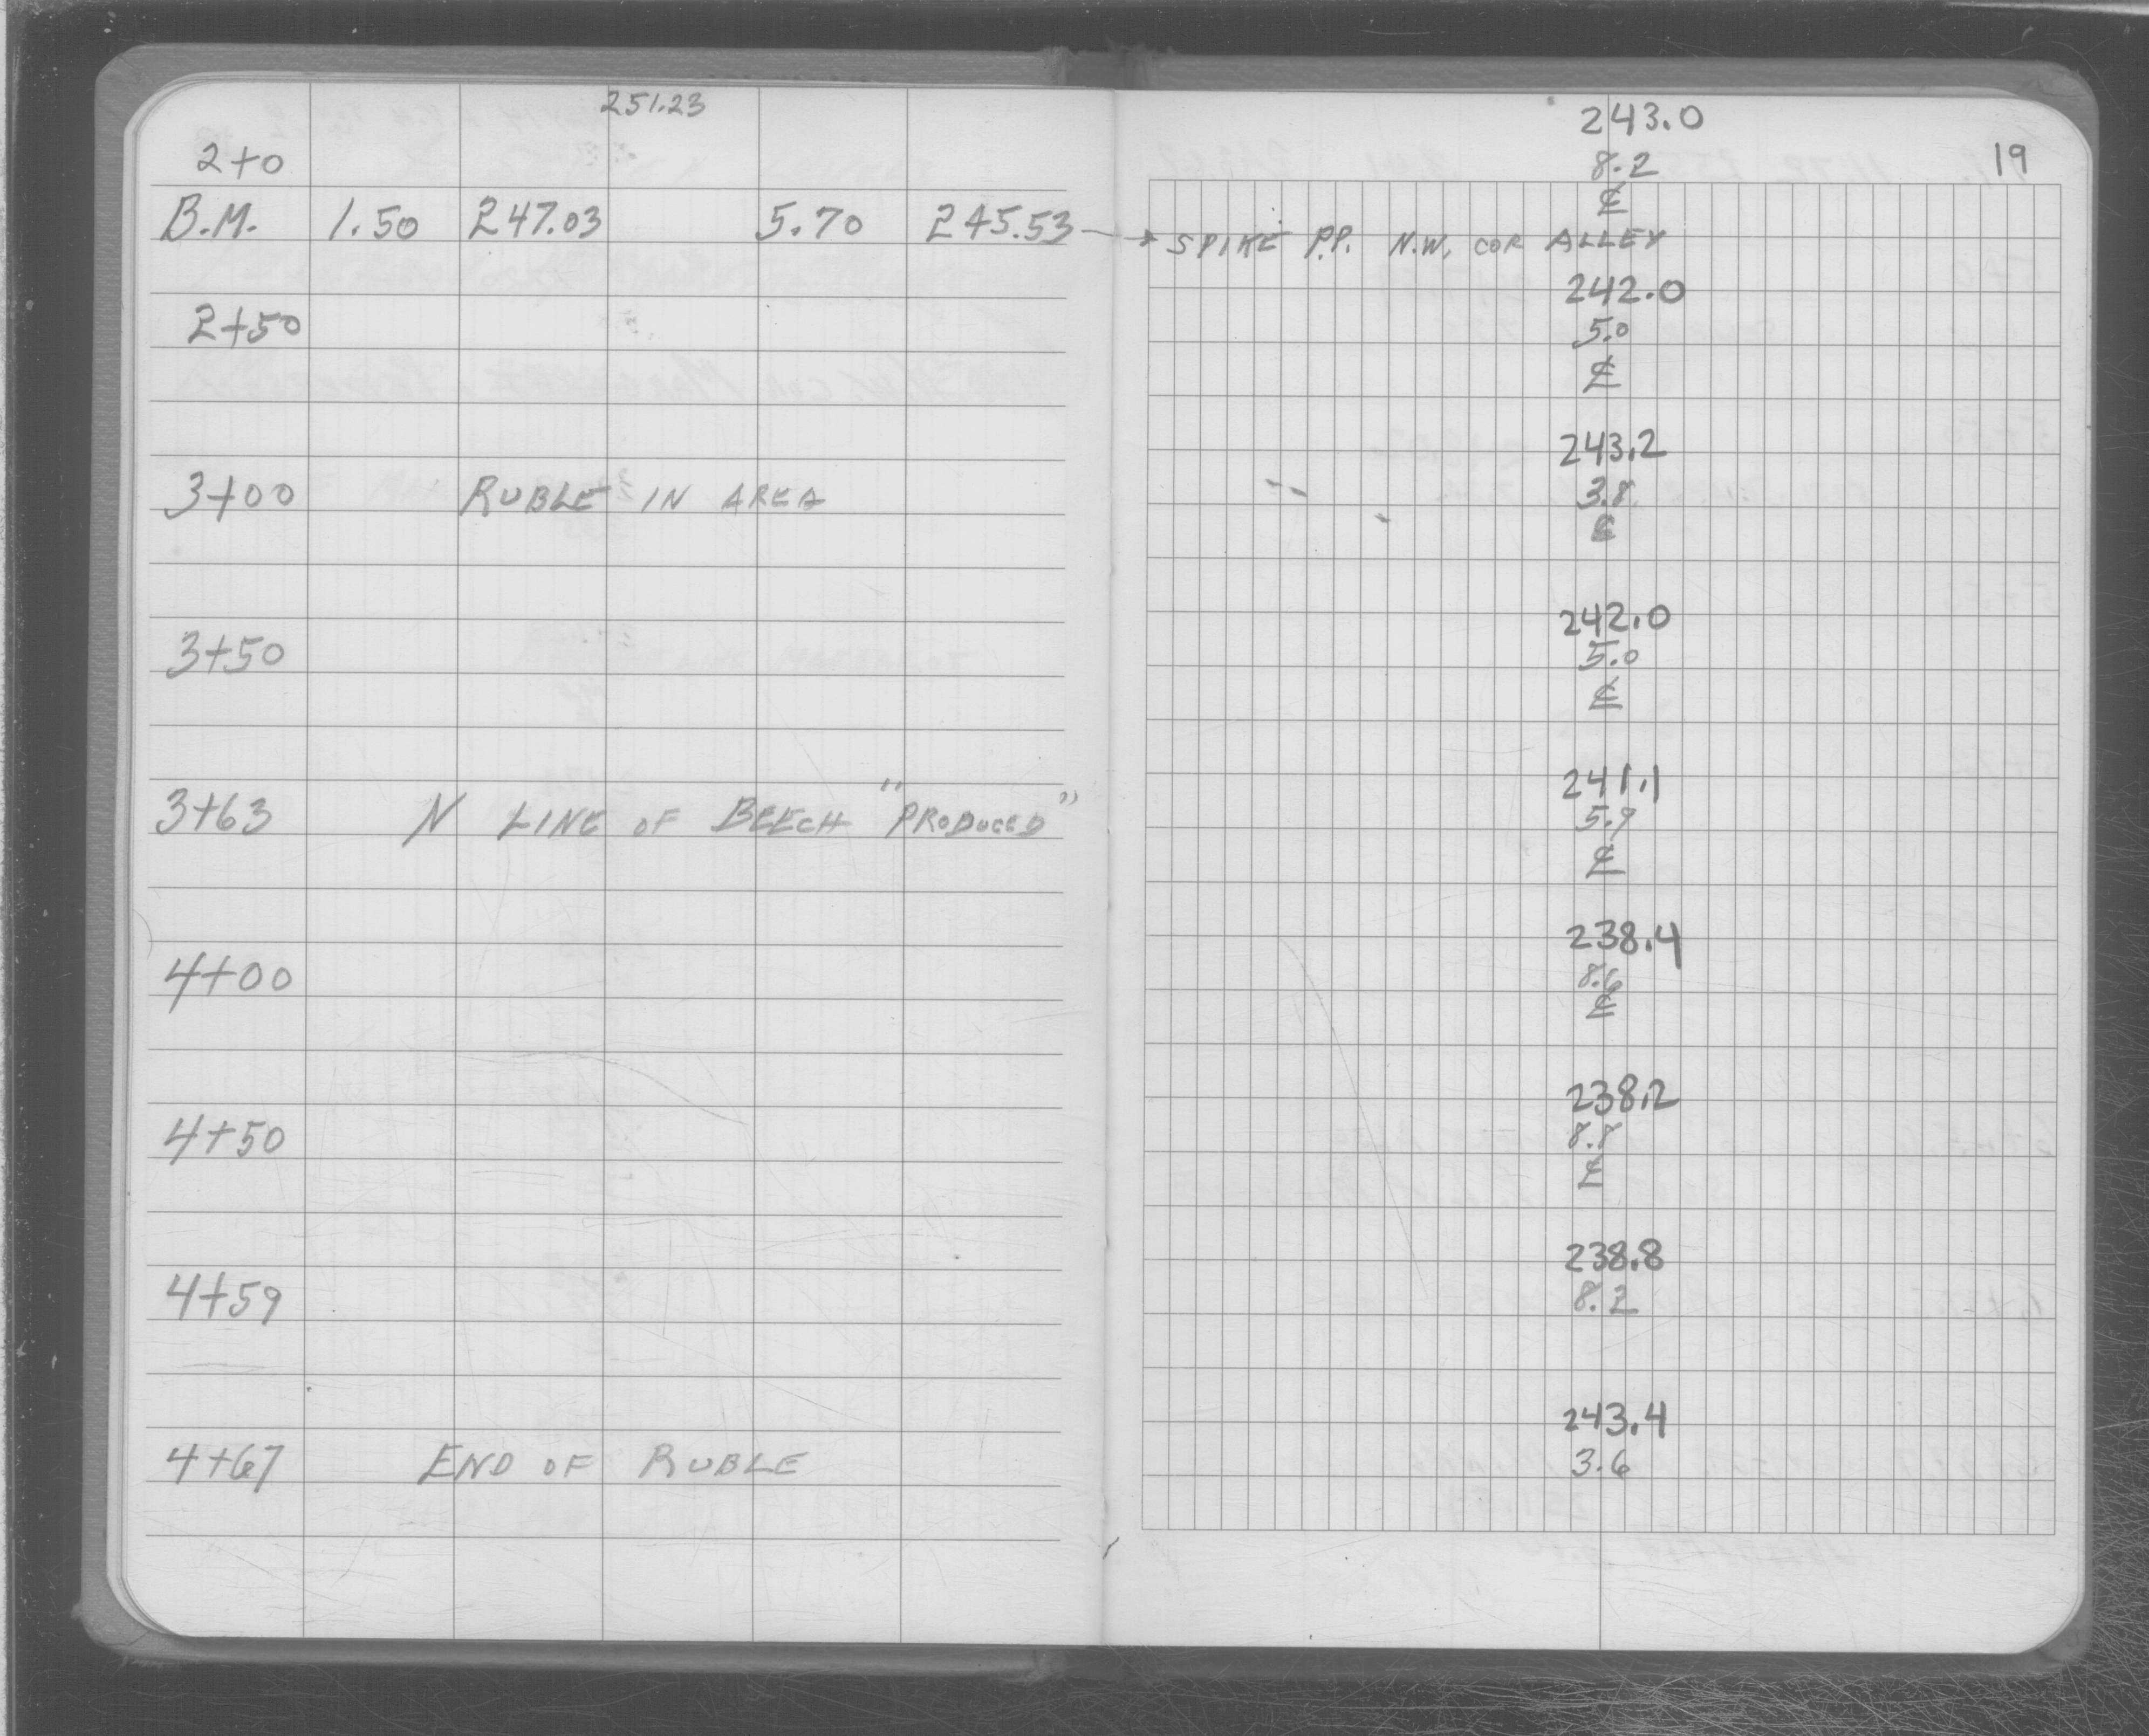 251.23
2+0
B.M. 1.50 247.03 5.70 245.53
2+50
3+00 RUBLE IN AREA
3+50
3+63 N LINE OF BEECH "PRODUCED"
4+00
4+50
4+59
4+67 END OF RUBLE
243.0
19
8.2
℄
SPIKE P.P. N.W. COR ALLEY
242.0
5.0
℄
243.2
3.8
℄
242.0
5.0
℄
241.1
5.9
℄
238.4
8.6
℄
238.2
8.8
℄
238.8
8.2
243.4
3.6